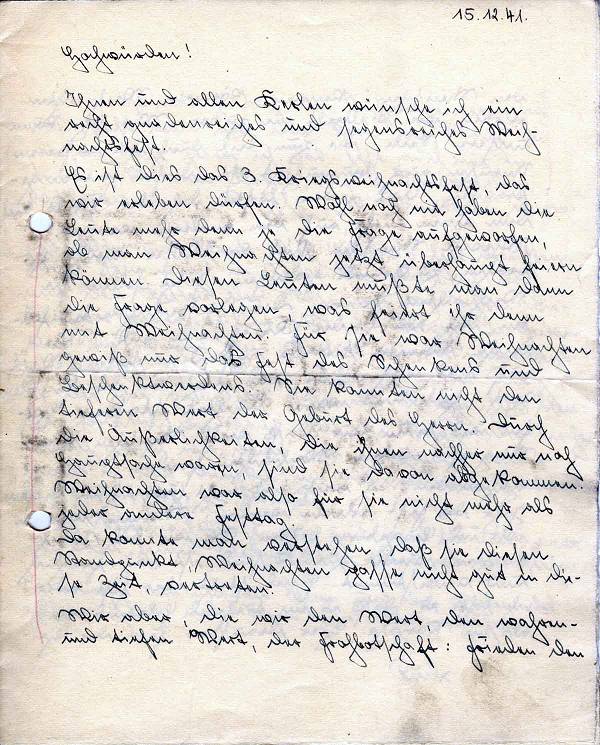 15.12.41.
Hochwürden!
Ihnen und allen Kerlen wünsche ich ein
recht gnadenreiches und segensreiches Weih-
nachtsfest.
Es ist dies das 3. Kriegsweihnachtsfest, das
wir erleben dürfen. Wohl noch nie haben die
Leute mehr denn je die Frage aufgeworfen,
ob man Weihnachten jetzt überhaupt feiern
können. Diesen Leuten müßte man dann
die Frage vorlegen, was feiert ihr denn
mit Weihnachten. Für sie war Weihnachten
gewiß nur das Fest des Schenkens und
Beschenktwerdens. Sie kannten nicht den
tieferen Wert der Geburt des Herrn. Durch
die Äußerlichkeiten, die ihnen nachher nur noch
Hauptsache waren, sind sie davon abgekommen.
Weihnachten war also für sie nicht mehr als
jeder andere Festtag.
Da konnte man verstehen, daß sie diesen
Standpunkt, Weihnachten passe nicht gut in die-
se Zeit, vertreten.
Wir aber, die wir den Wert, den wahren-
und tiefen Wert, der Frohbotschaft: Frieden den